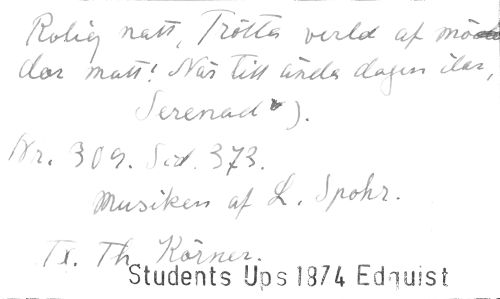 Rolig natt, Trötta verld af mö
dor matt! När till ända dagen ilar,
Serenad).
Nr. 309. Sid. 373.
Musiken af L. Spohr.
Tx. Th. Körner.
Students Ups 1874 Edquist